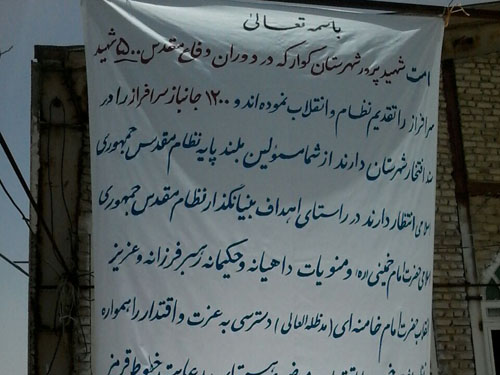 باسمه تعالی
امت شهید پرور شهرستان کوار که در دوران دفاع مقدس ۵۰۰ شهید
سرافراز را تقدیم نظام و انقلاب نموده اند و ۱۲۰۰ جانباز سرافراز را در
افتخار شهرستان دارند از شما مسئولین بلند پایه نظام مقدس جمهوری
اسلامی انتظار دارند در راستای اهداف بنیانگذار نظام مقدس جمهوری
اسلامی حضرت امام خمینی (ره) و منویات داهیانه و حکیمانه رهبر فرزانه و عزیز
انقلاب حضرت امام خامنه ای (مدظله العالی) دسترسی به عزت و اقتدار را همواره
رعایت خطوط قرمز